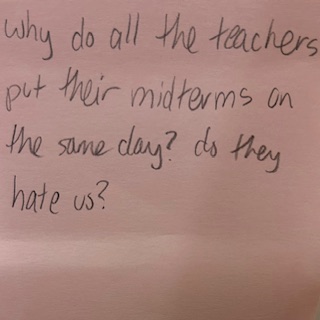 why do all the teachers
put their midterms on
the same day? do they
hate us?